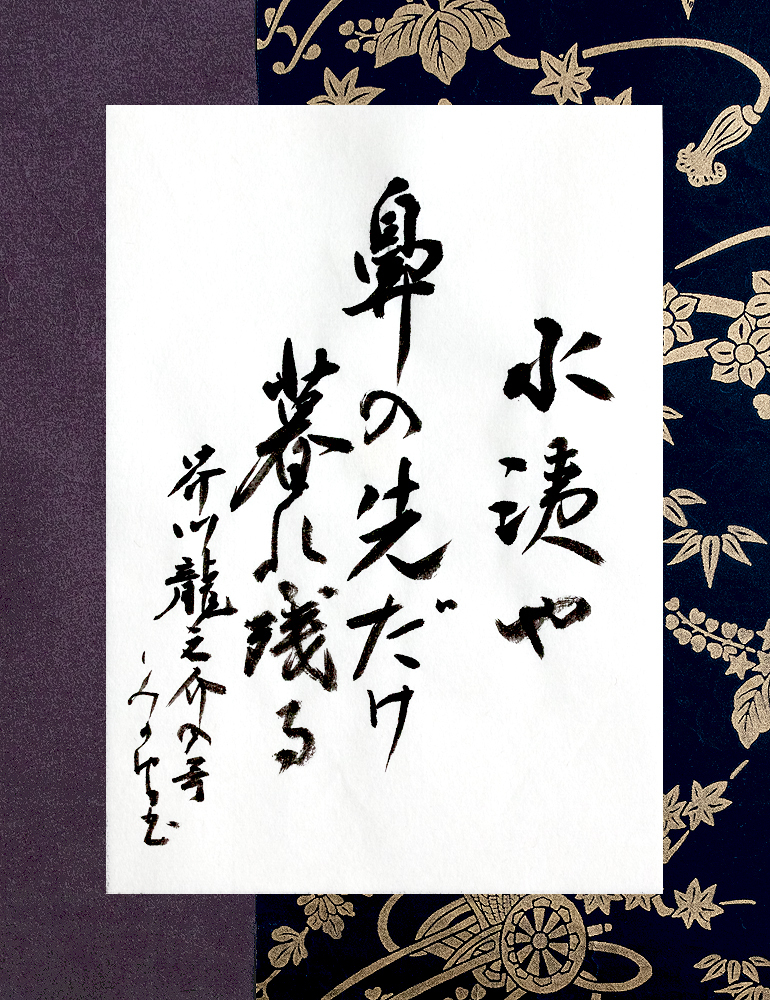 水洟や
鼻の先だけ
暮れ残る
芥川龍之介の号
書